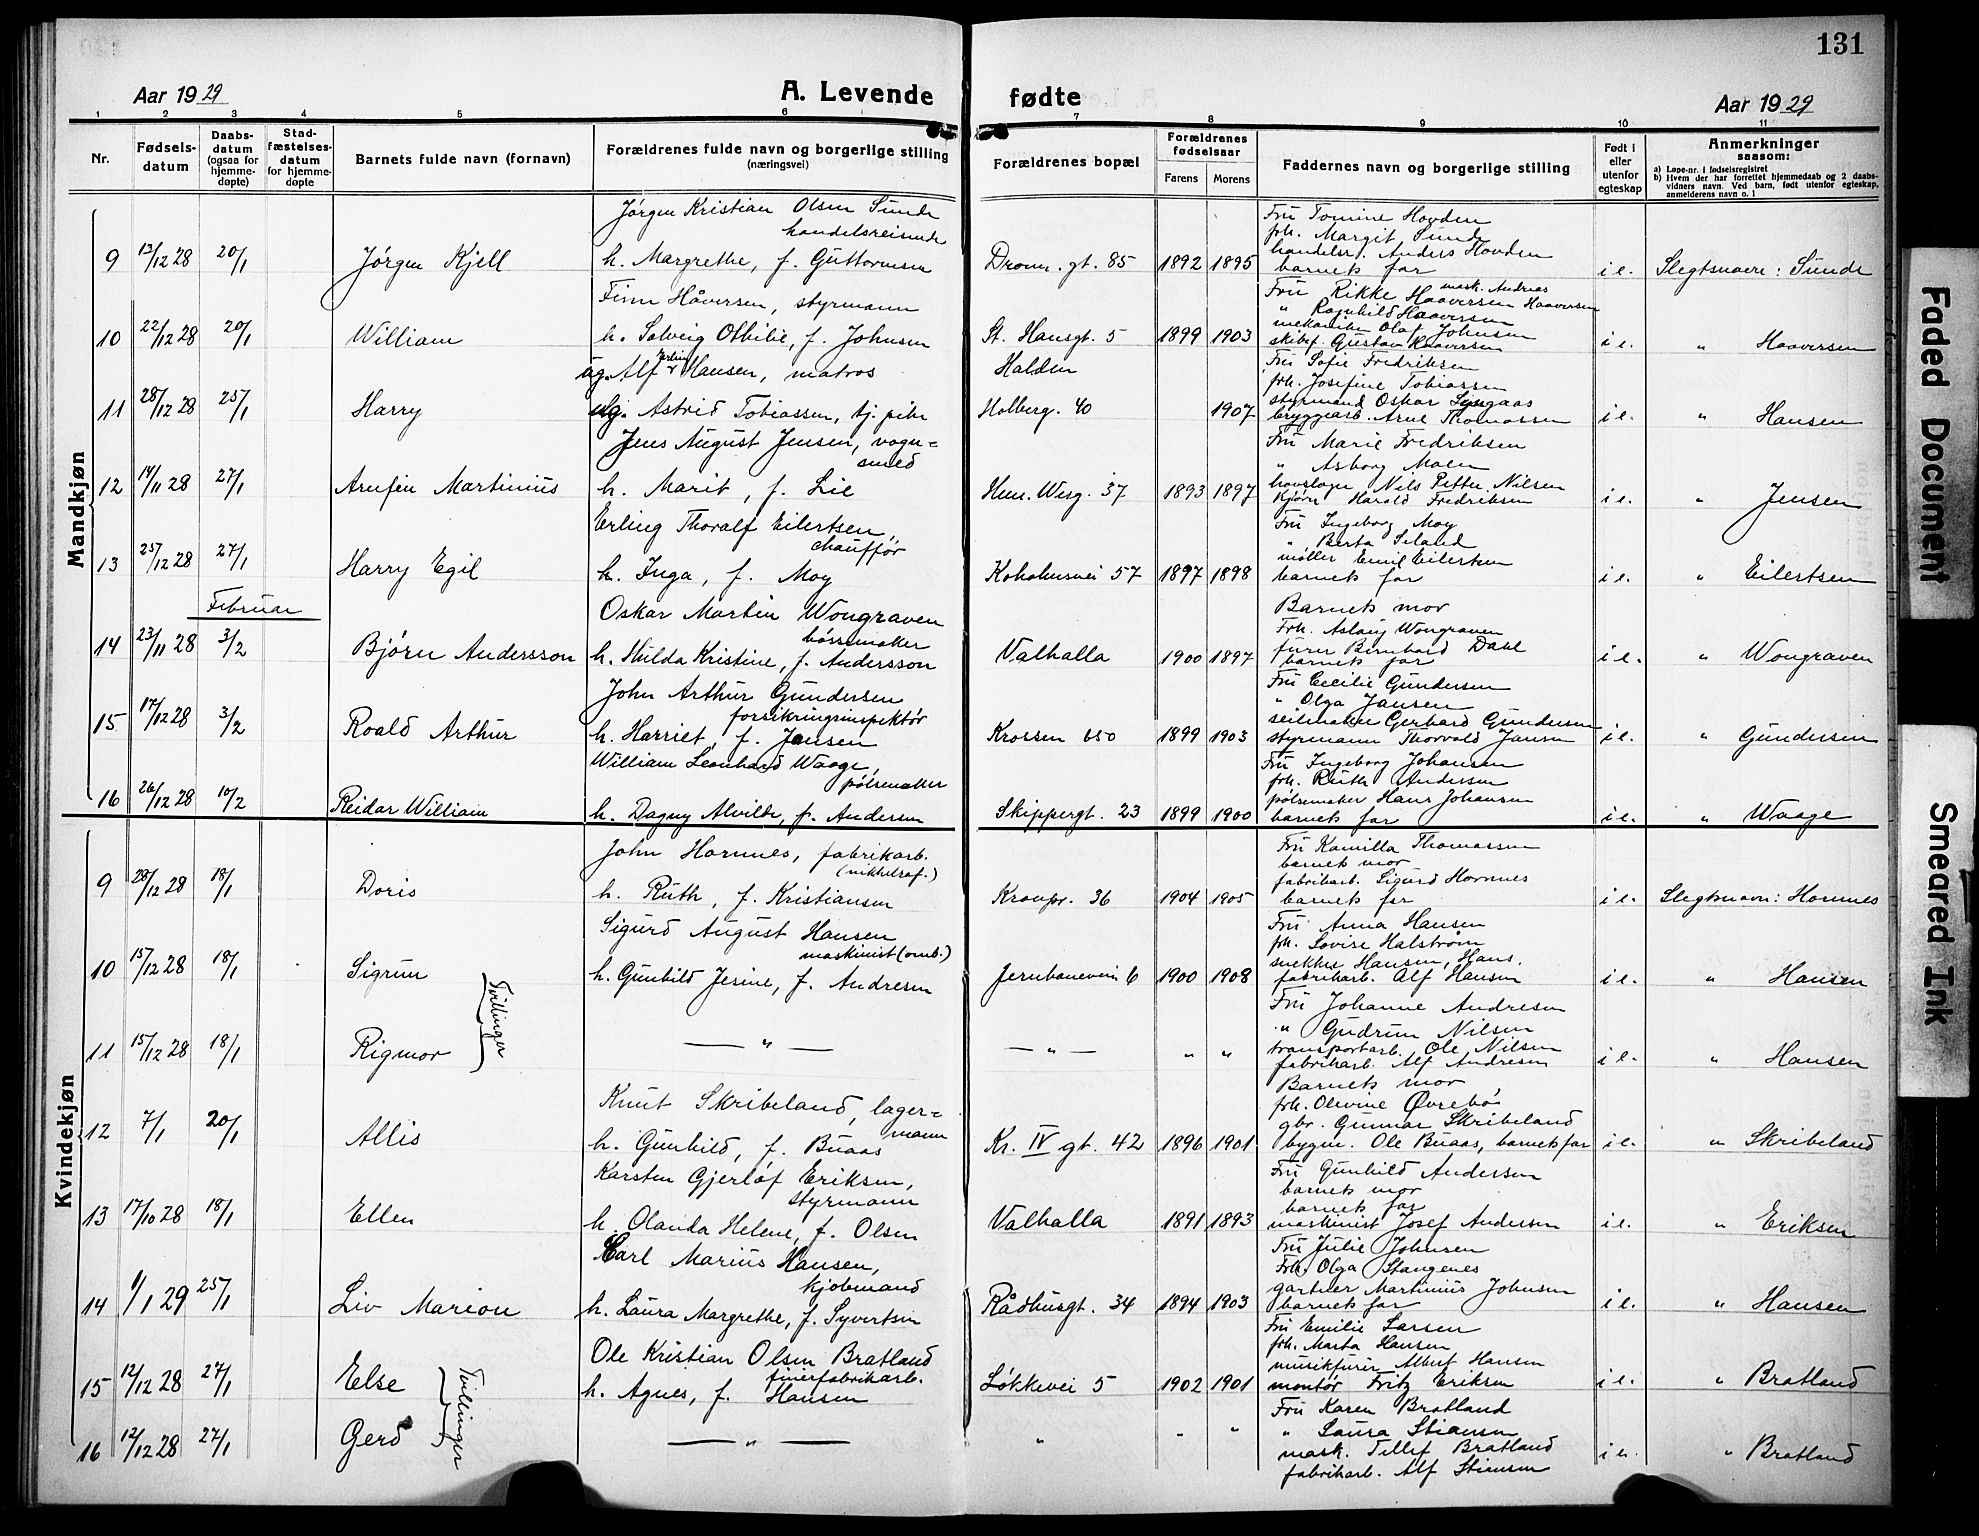 131
Aar 1929
A. Levende fødte
Aar 1929
1 2 3 4 5 6 7 8 9 10 11
Nr.
Fødselsdatum
Daabsdatum (ogsaa for hjemmedøpte)
Stadfæstelsesdatum for hjemmedøpte
Barnets fulde navn (fornavn)
Forældrenes fulde navn og borgerlige stilling (næringsvei)
Forældrenes bopæl
Forældrenes fødselsaar
Farens Morens
Faddernes navn og borgerlige stilling
Født i eller utenfor egteskap
Anmerkninger saasom:
a) Løpe-nr. i fødselsregistret
b) Hvem der har forrettet hjemmedaab og 2 daabsvidners navn. Ved barn, født utenfor egteskap, anmelderens navn o. l
Mandkjøn
9 13/12 28 20/1 Jørgen Kjell
Jørgen Kristian Olsen Sunde
handelsreisende
h. Margrethe, f. Guttormsen
Dronn. gt. 85 1892 1895
Fru Tomine Hovden
frk. Margit Sunde
handelsr. Anders Hovden
barnets far
i e. Slegtsnavn: Sunde
10 22/12 28 20/1 William
Finn Håversen, styrmann
h. Solveig Othilie, f. Johnsen
St. Hansgt. 5 1899 1903
Fru Rikke Haaversen
mask. Andreas Haaversen
" Ragnhild Haaversen
mekaniker Olaf Johnsen
skibsf. Gustav Haaversen
i e. " Haaversen
11 28/12 28 25/1 Harry
ug. Alf Erling Hansen, matros
ug. Astrid Tobiassen, tj. pike
Halden
Holberg. 40 1907
Fru Sofie Fredriksen
frk. Josefine Tobiassen
styrmand Oskar Lyngaas
bryggearb. Arne Thomassen
i e. " Hansen
12 14/11 28 27/1 Arnfin Martinius
Jens August Jensen, vogn=
smed
h. Marit, f. Lie
Hen. Werg. 37 1893 1897
Fru Marie Fredriksen
" Asborg Moen
hovslager Nils Petter Nilsen
Kjører Harald Fredriksen
i e. " Jensen
13 25/12 28 27/1 Harry Egil
Erling Thoralf Eilertsen,
chauffør
h. Inga, f. Moy
Koholmsvei 57 1897 1898
Fru Ingeborg Moy
" Berta Seland
møller Emil Eilertsen
barnets far
i e. " Eilertsen
Februar
14 23/11 28 3/2 Bjørn Andersson
Oskar Martin Wongraven
børsemaker
h. Hilda Kristine, f. Andersson
Valhalla 1900 1897
Barnets mor
Frk. Aslaug Wongraven
furer Bernhard Dahl
barnets far
i e. " Wongraven
15 17/12 28 3/2 Roald Arthur
John Arthur Gundersen
forsikringsinspektør
h. Harriet, f. Jansen
Krossen 650 1899 1903
Fru Cecilie Gundersen
" Olga Jansen
seilmaker Gerhard Gundersen
styrmann Thorvald Jansen
i e. " Gundersen
16 26/12 28 10/2 Reidar William
William Leonhard Waage,
pølsemaker
h. Dagny Alvilde, f. Andersen
Skippergt. 23 1899 1900
Fru Ingeborg Johansen
frk. Ruth Andersen
pølsemaker Hans Johansen
barnets far
i e. " Waage
Kvindekjøn
9 28/12 28 18/1 Doris
John Hornnes, fabrikarb.
(nikkelraf.)
h. Ruth, f. Kristiansen
Kronpr. 36 1904 1905
Fru Kamilla Thomassen
barnets mor
fabrikarb. Sigurd Hornnes
barnets far
i e. Slegtsnavn: Hornnes
10 15/12 28 18/1 Sigrun
Sigurd August Hansen
maskinist (omb.)
h. Gunhild Jesine, f. Andresen
Jernbaneveien 6 1900 1908
Fru Anna Hansen
frk. Lovise Halstrøm
snekker Hansen, Hans.
fabrikarb. Alf Hansen
i e. " Hansen
Tvillinger
11 15/12 28 18/1 Rigmor
— " —
— " — " "
Fru Johanne Andresen
" Gudrun Nilsen
transportarb. Ole Nilsen
fabrikarb. Alf Andresen
i e. " Hansen
12 7/1 20/1 Allis
Knut Skribeland, lager=
mann
h. Gunhild, f. Buaas
Kr. IV gt. 42 1896 1901
Barnets mor
frk. Olevine Øvrebø
gbr. Gunnar Skribeland
bygm. Ole Buaas, barnets far
i e. " Skribeland
13 17/10 28 18/1 Ellen
Karsten Gjerløf Eriksen,
styrmann
h. Olanda Helene, f. Olsen
Valhalla 1891 1893
Fru Gunhild Andersen
barnets mor
barnets far
maskinist Josef Andersen
i e. " Eriksen
14 1/1 29 25/1 Liv Marion
Carl Marius Hansen,
kjøbmand
h. Laura Margrethe, f. Syvertsen
Rådhusgt. 34 1894 1903
Fru Julie Johnsen
Frk. Olga Stangenes
gartner Martinius Johnsen
barnets far
i e. " Hansen
15 12/12 28 27/1 Else
Ole Kristian Olsen Bratland
finerfabrikarb.
h. Agnes, f. Hansen
Løkkevei 5 1902 1901
Fru Emilie Larsen
frk. Marta Hansen
musikfurer Albert Hansen
montør Fritz Eriksen
i e. " Bratland
Tvillinger
16 12/12 28 27/1 Gerd
— " —
" " "
Fru Karen Bratland
" Laura Stiansen
mask. Tellef Bratland
fabrikarb. Alf Stiansen
i e. " Bratland
Faded Document
Smeared Ink